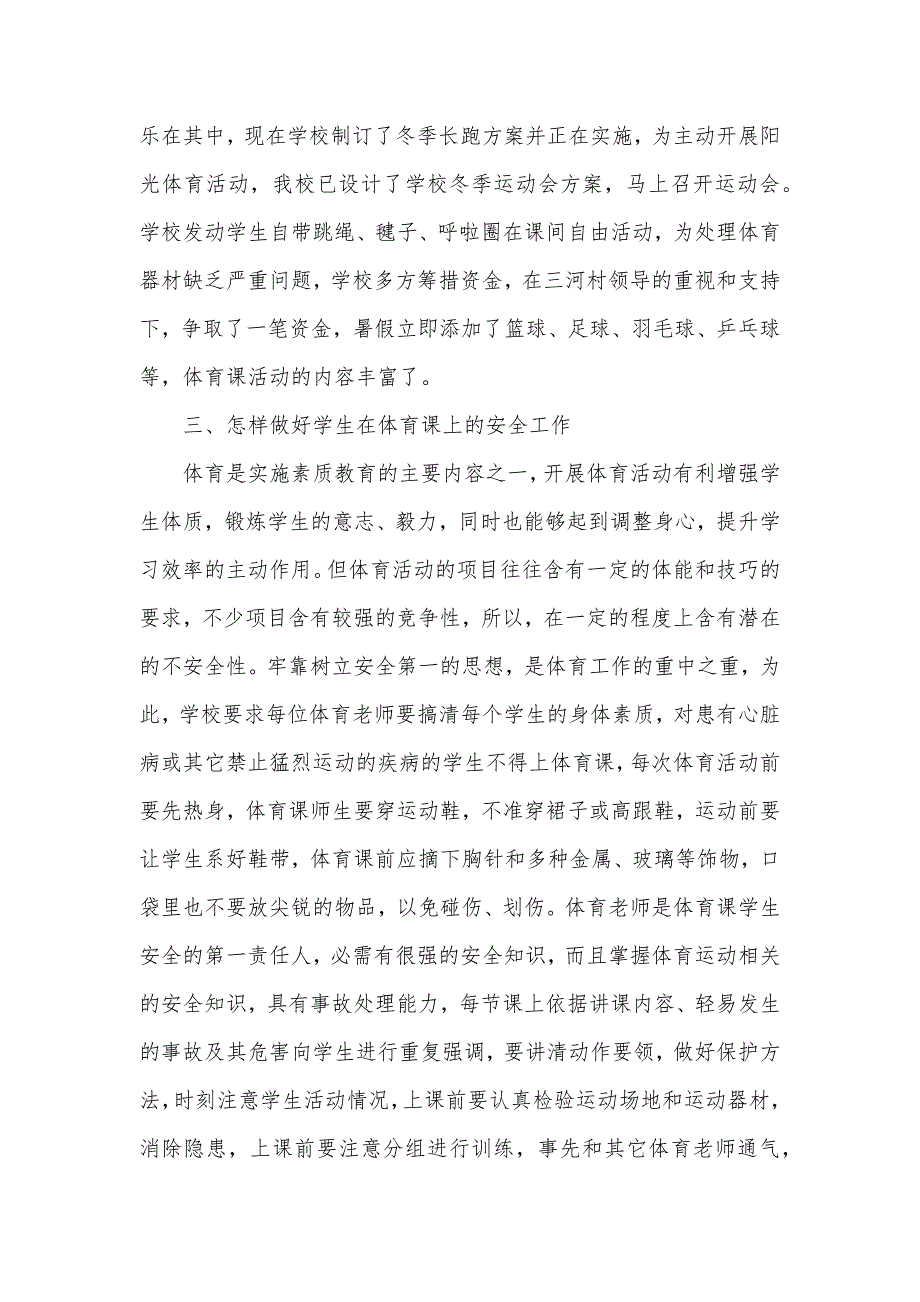 乐在其中，现在学校制订了冬季长跑方案并正在实施，为主动开展阳
光体育活动，我校已设计了学校冬季运动会方案，马上召开运动会。
学校发动学生自带跳绳、毽子、呼啦圈在课间自由活动，为处理体育
器材缺乏严重问题，学校多方筹措资金，在三河村领导的重视和支持
下，争取了一笔资金，暑假立即添加了篮球、足球、羽毛球、乒乓球
等，体育课活动的内容丰富了。
三、怎样做好学生在体育课上的安全工作
体育是实施素质教育的主要内容之一，开展体育活动有利增强学
生体质，锻炼学生的意志、毅力，同时也能够起到调整身心，提升学
习效率的主动作用。但体育活动的项目往往含有一定的体能和技巧的
要求，不少项目含有较强的竞争性，所以，在一定的程度上含有潜在
的不安全性。牢靠树立安全第一的思想，是体育工作的重中之重，为
此，学校要求每位体育老师要搞清每个学生的身体素质，对患有心脏
病或其它禁止猛烈运动的疾病的学生不得上体育课，每次体育活动前
要先热身，体育课师生要穿运动鞋，不准穿裙子或高跟鞋，运动前要
让学生系好鞋带，体育课前应摘下胸针和多种金属、玻璃等饰物，口
袋里也不要放尖锐的物品，以免碰伤、划伤。体育老师是体育课学生
安全的第一责任人，必需有很强的安全知识，而且掌握体育运动相关
的安全知识，具有事故处理能力，每节课上依据讲课内容、轻易发生
的事故及其危害向学生进行重复强调，要讲清动作要领，做好保护方
法，时刻注意学生活动情况，上课前要认真检验运动场地和运动器材，
消除隐患，上课前要注意分组进行训练，事先和其它体育老师通气，